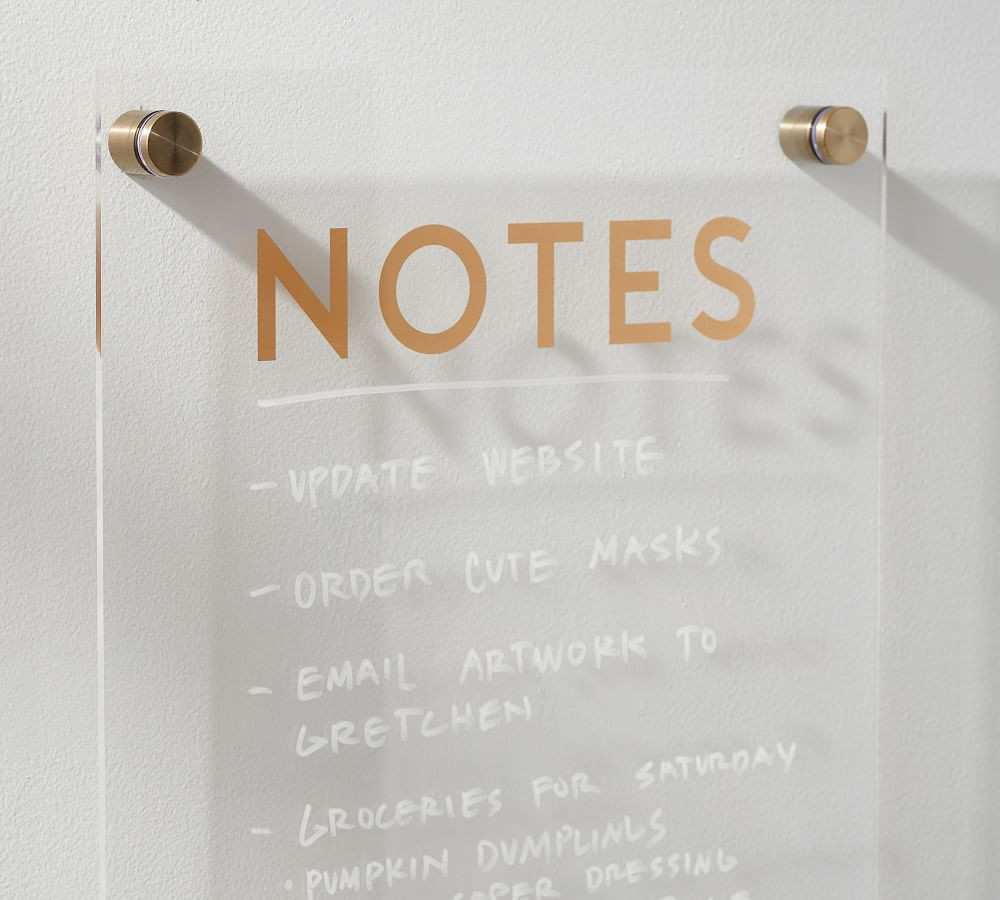 NOTES
- UPDATE WEBSITE
- ORDER CUTE MASKS
- EMAIL ARTWORK TO
GRETCHEN
- GROCERIES FOR SATURDAY
• PUMPKIN DUMPLINGS
DRESSING